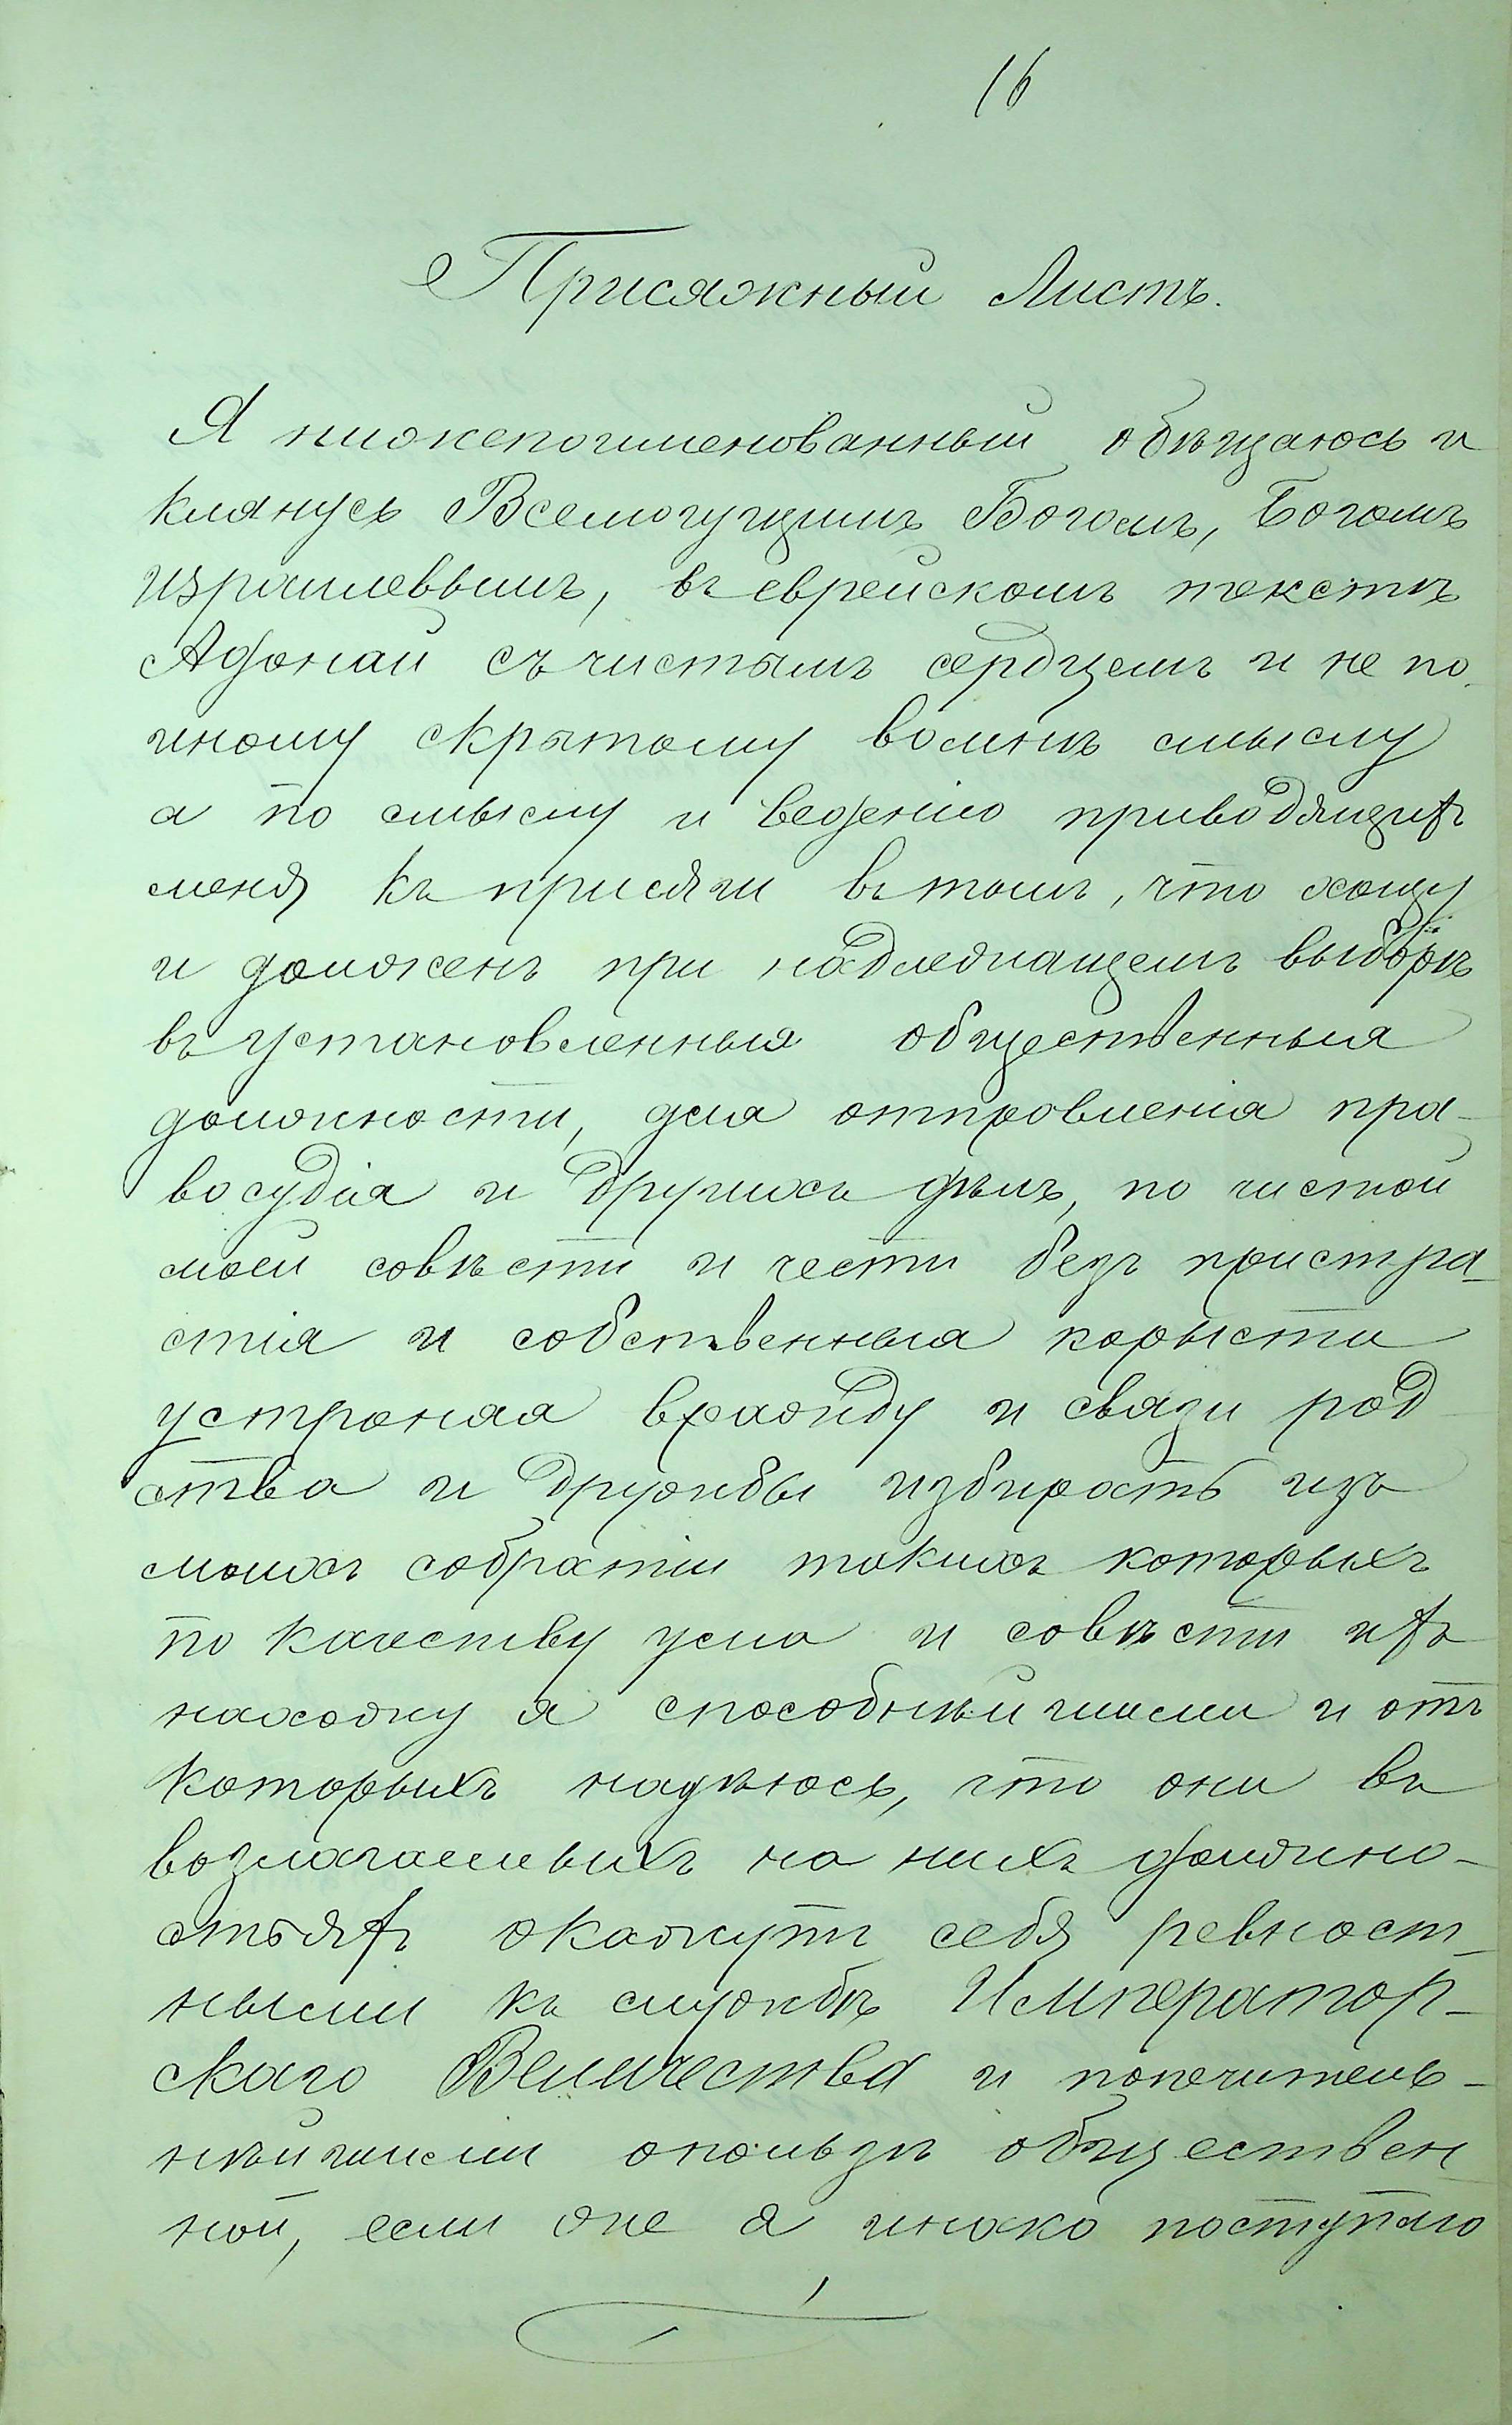 16
Присяжный Листъ.
Я нижепоименованный обѣщаюсь и
клянусь Всемогущимъ Богомъ, Богомъ
израилевымъ, въ еврейскомъ текстѣ
Адонаи съ чистымъ сердцемъ и не по
иному скрытому во мнѣ смыслу
а по смыслу и веденію приводящихъ
меня къ присяги въ томъ, что хощу
и долженъ при надлежащемъ выборѣ
въ установленныя общественныя
должности, для отправленія пра-
восудія и другихъ дѣлъ, по чистой
моей совѣсти и чести безъ пристра-
стія и собственныя корысти
устроняя вражду и связи род
ства и дружбы избирать изъ
моихъ собратіи такихъ которыхъ
по качеству ума и совѣсти ихъ
нахожу я способнѣйшими и отъ
которыхъ надѣюсь, что они въ
возлагаемыхъ на нихъ должно-
стьяхъ окажутъ себя ревност-
ными къ службѣ Император-
скаго Величества и попечитель-
нѣйшими опользѣ обществен
ной, если же я инако поступлю